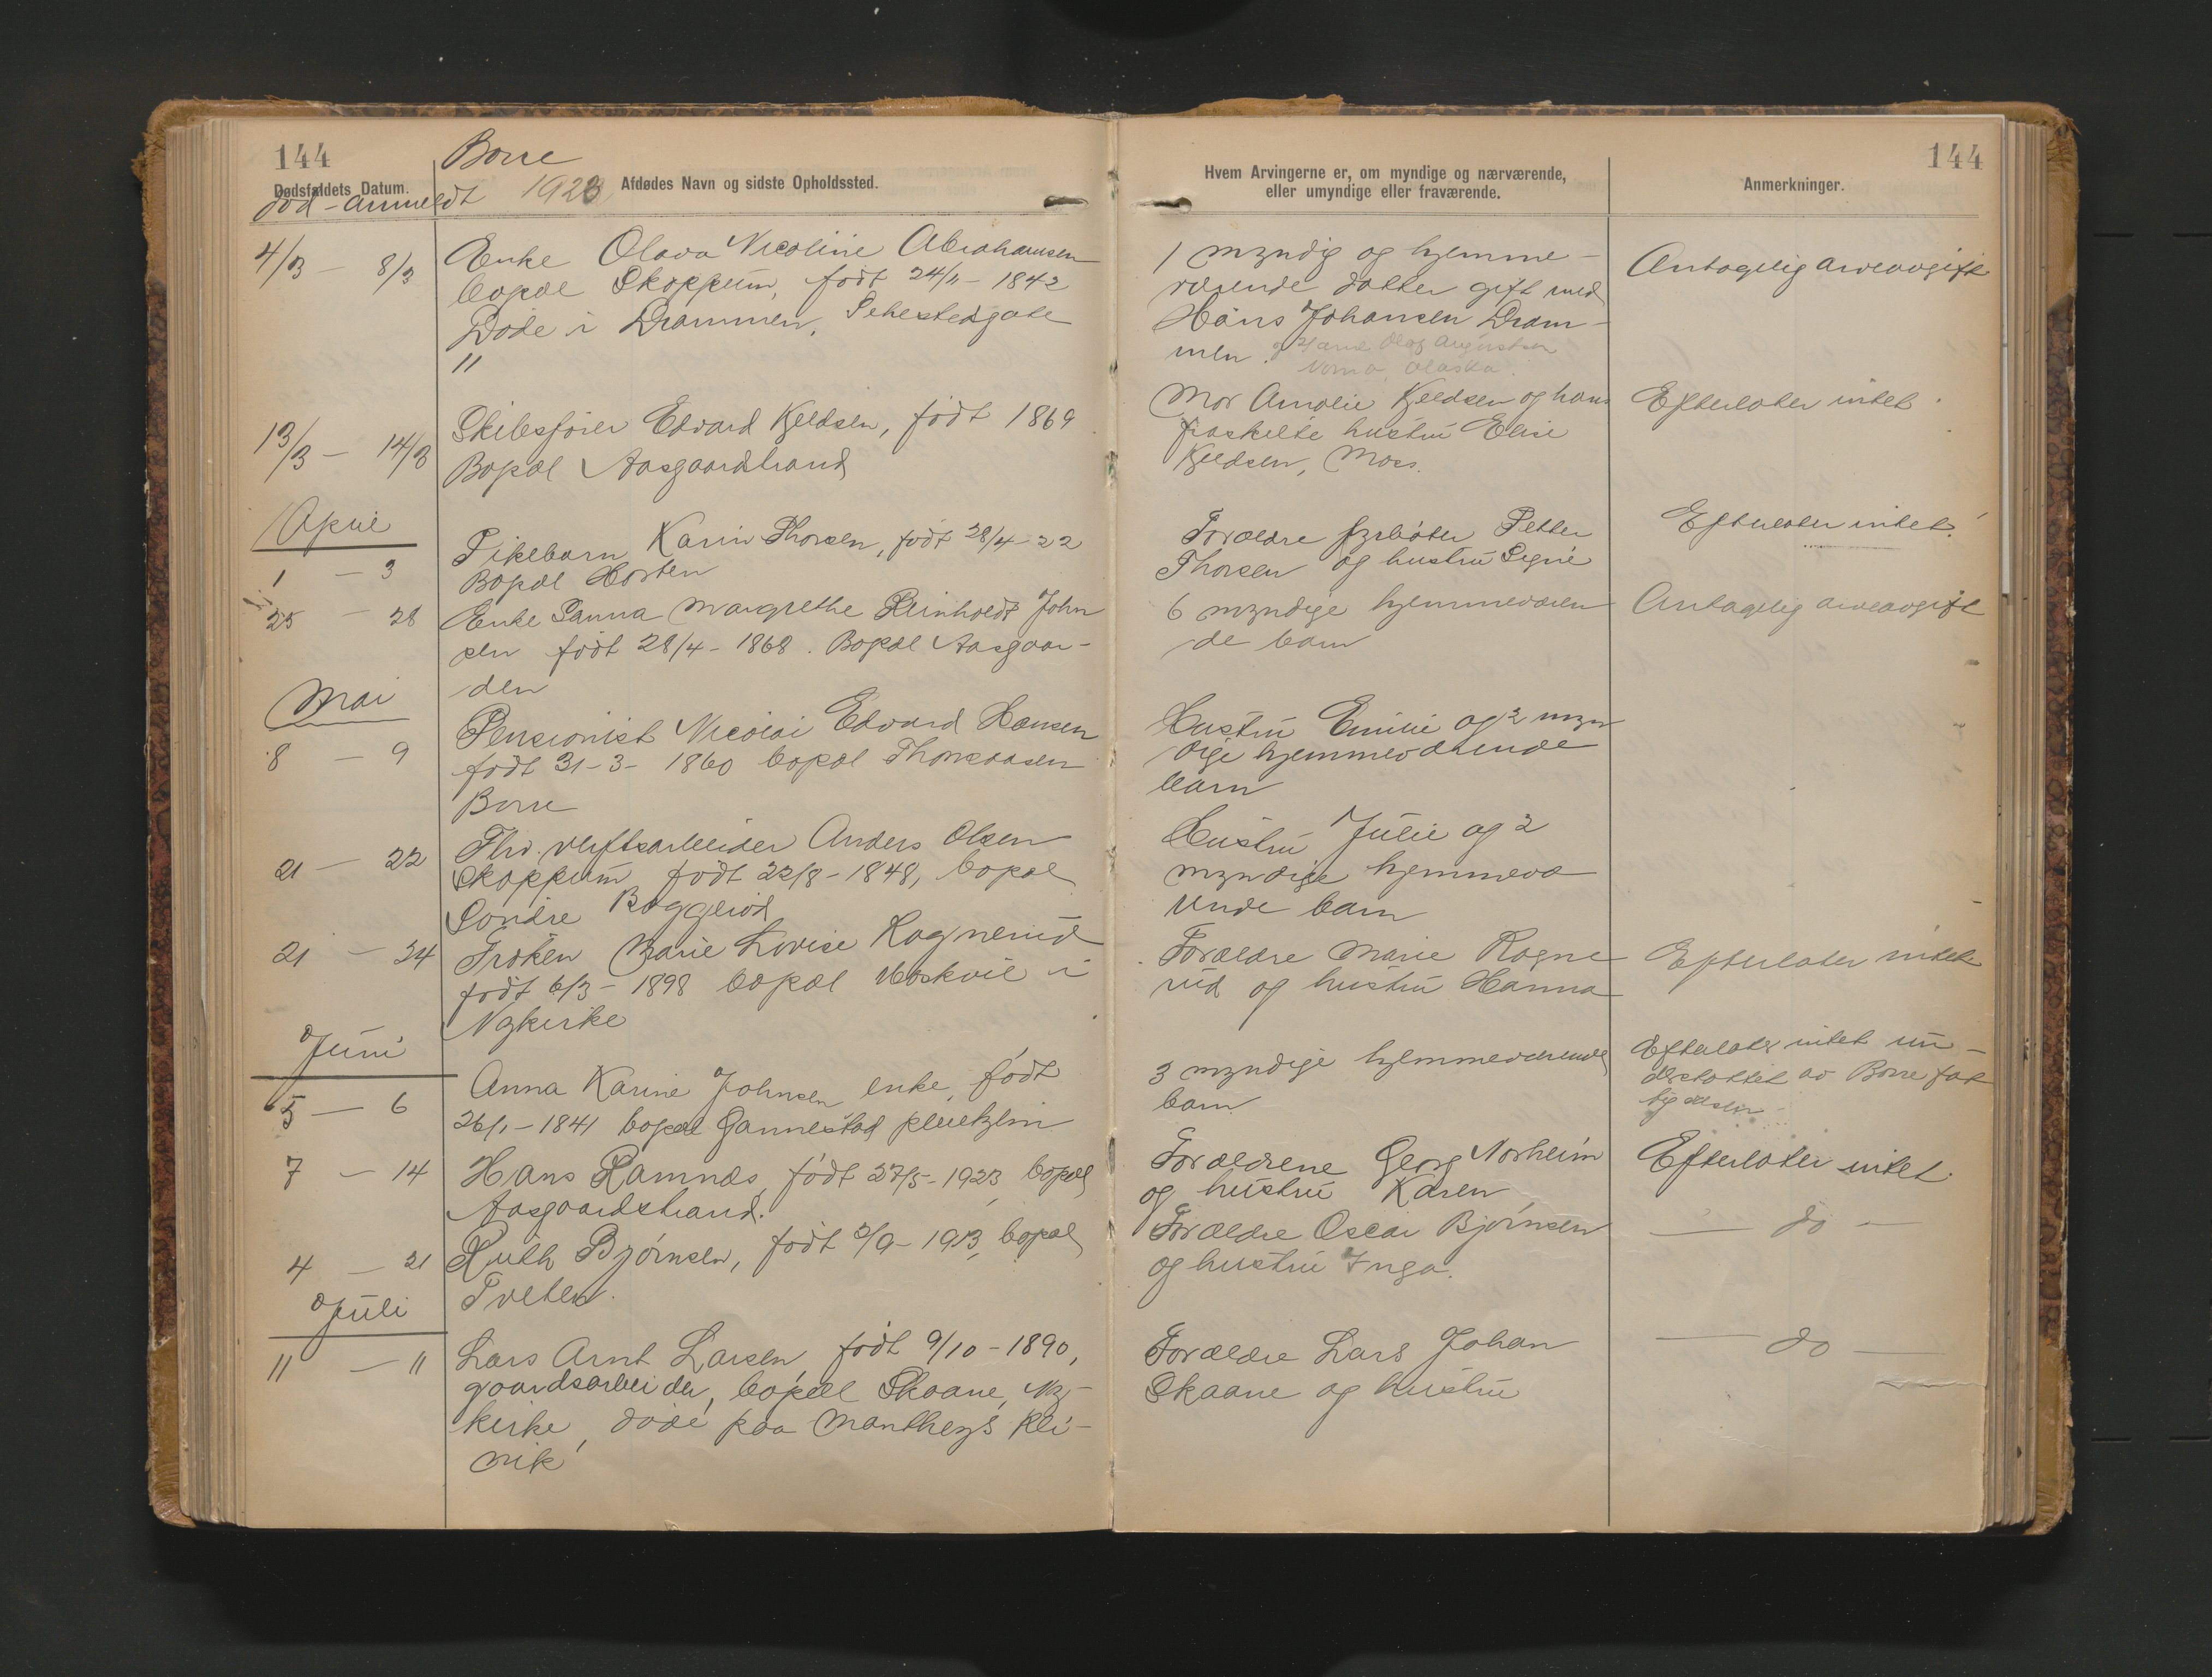 144
Borre
Dødsfaldets Datum.
Død - anmeldt 1923
Afdødes Navn og sidste Opholdssted.
4/3 - 8/3
Enke Olava Nicoline Abrahamsen
bopæl Skoppum, født 24/11 - 1842
Døde i Drammen, Sehestedgate
11
13/3 - 14/3
Skibsfører Edvard Kjeldsen, født 1869
Bopæl Aasgaardstrand
April
1 - 3
Pikebarn Karin Thorsen, født 28/4-22
Bopæl Horten
25 - 28
Enke Sanna Margrethe Reinholdt John
sen født 28/4 - 1868. Bopæl Aasgaar-
den
Mai
8 - 9
Pensionist Nicolai Edvard Hansen
født 31-3- 1860 bopæl Thorsaasen
Borre
21 - 22
Fhv. verftsarbeider Anders Olsen
Skoppum født 22/8 - 1848, bopæl
Søndre
21 - 24
Frøken Marie Lovise Ragnerud
født 6/3 - 1898 bopæl i
Nykirke
Juni
5 - 6
Anna Karine Johnsen enke, født
26/1 - 1841 bopæl Gannestad pleiehjem
7 - 14
Hans Ramnæs, født 27/5 - 1923, bopæl
Aasgaardstrand.
4 - 21
Ruth Bjørnsen, født 3/9 - 1913, bopæl
Tveten.
Juli
11 - 11
Lars Arnt Larsen, født 9/10 - 1890,
gaardsarbeider, bopæl Skaane, Ny-
kirke, døde paa Mantheys kli-
nik
144
Hvem Arvingerne er, om myndige og nærværende,
eller umyndige eller fraværende.
Anmerkninger.
1 myndig og hjemme-
værende datter gift med
Hans Johansen Dram-
men. og Olaf Augustsen
Noma, Alaska.
Antagelig arveavgift
Mor Amalie Kjeldsen og hans
fraskilte hustru Elise
Kjeldsen, Moss.
Efterlater intet.
Forældre fyrbøter Petter
Thorsen og hustru Signe
Efterlater intet.
6 myndige hjemmeværen
de barn
Antagelig arveavgift
Hustru Emilie og 2 myn
dige hjemmeværende
barn
Hustru Julie og 2
myndige hjemmevæ
rende barn
Forældre Marie Ragne
rud og hustru Hanna
Efterlater intet
3 myndige hjemmeværende
barn
Efterlater intet un-
derstøttet av Borre fat
tigvæsen
Forældrene Georg Norheim
og hustru Karen
Efterlater intet.
Forældre Oscar Bjørnsen
og hustru Inga.
- do -
Forældre Lars Johan
Skaane og hustru
- do -